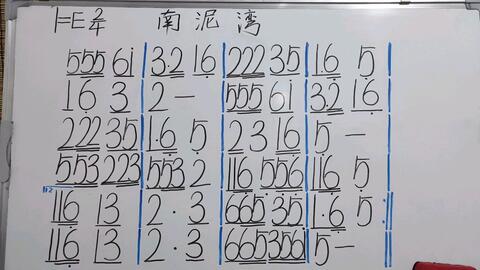 1=E 2/4 南泥湾
555 61 | 3.2 16 | 222 35 | 16 5 |
16 3 | 2 — | 555 61 | 3.2 16 |
222 35 | 1.6 5 | 23 16 | 5 — |
553 223 | 553 2 | 116 556 | 116 5 |
116 13 | 2 . 3 | 665 35 | 1.6 5 :|
116 13 | 2 . 3 | 665 356 | 5 — ||